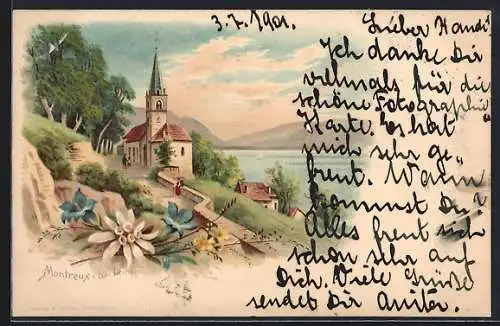 3.7.1901.
Lieber Hansi!
Ich danke Dir
vielmals für die
schöne Fotographie
Karte. Es hat
mich sehr ge
freut. Wann
kommst Du?
Alles freut sich
schon sehr auf
Dich. Viele Grüße
sendet Dir Anita.
Montreux